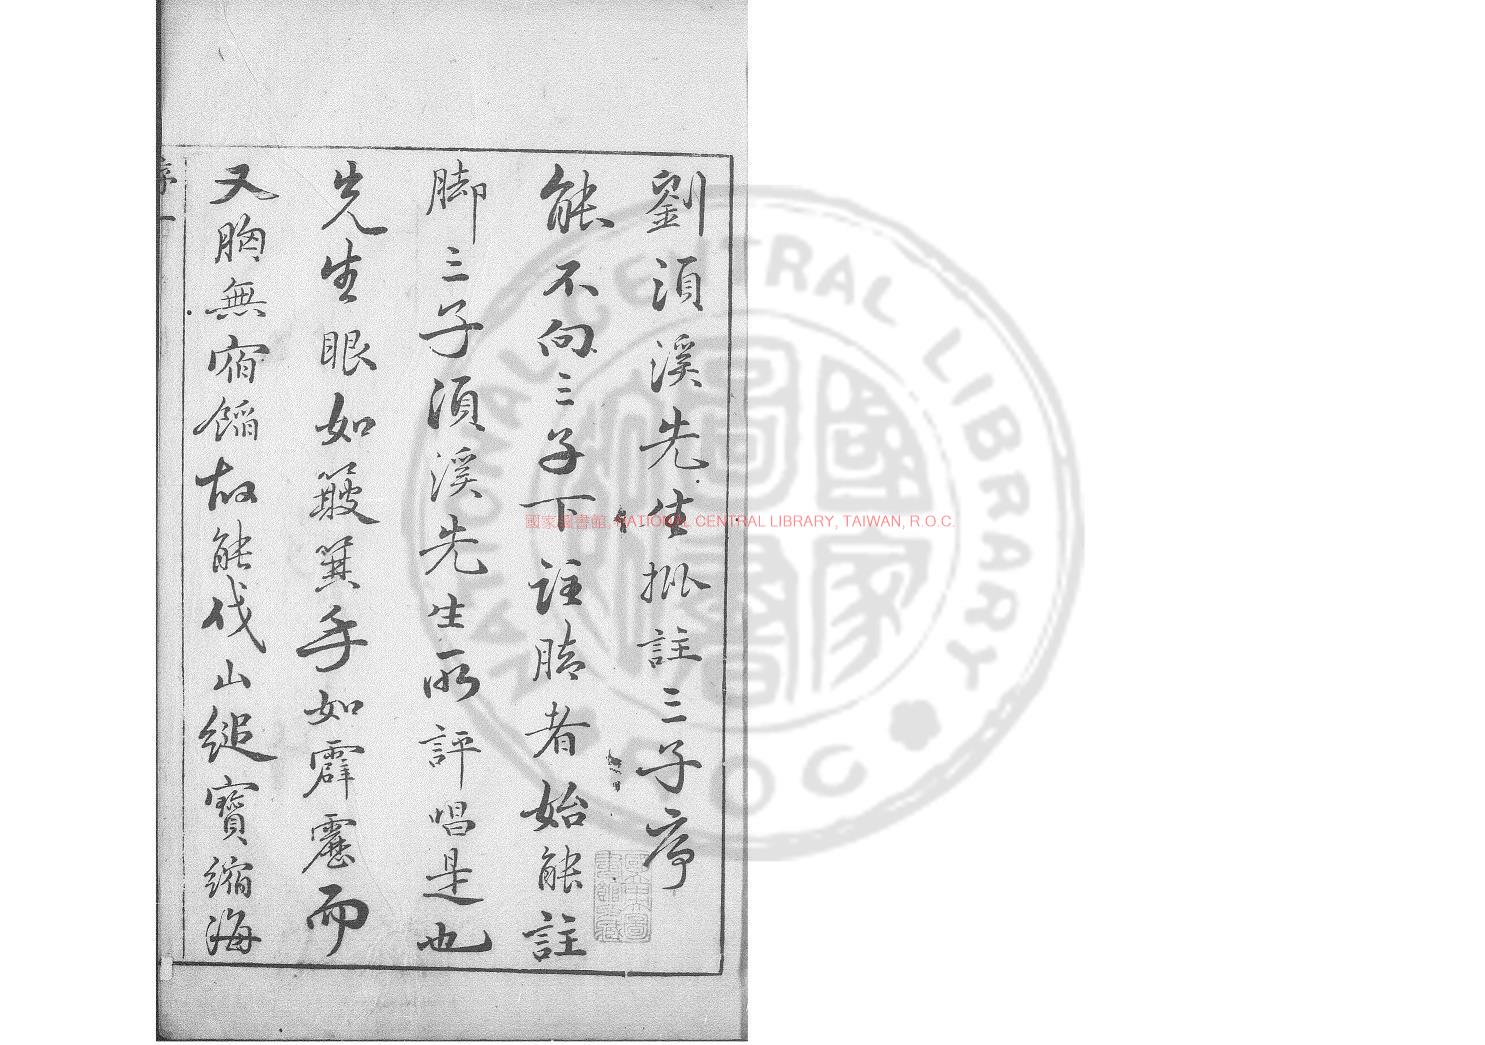 劉須溪先生批註三子序
能不向三子下註腳者始能註
脚三子須溪先生所評唱是也
先生眼如簸箕手如霹靂而
又胸無宿餡故能伐山縋寶縮海
序一
國家圖書館, NATIONAL CENTRAL LIBRARY, TAIWAN, R.O.C.
NATIONAL CENTRAL LIBRARY
R O C
國家圖書館